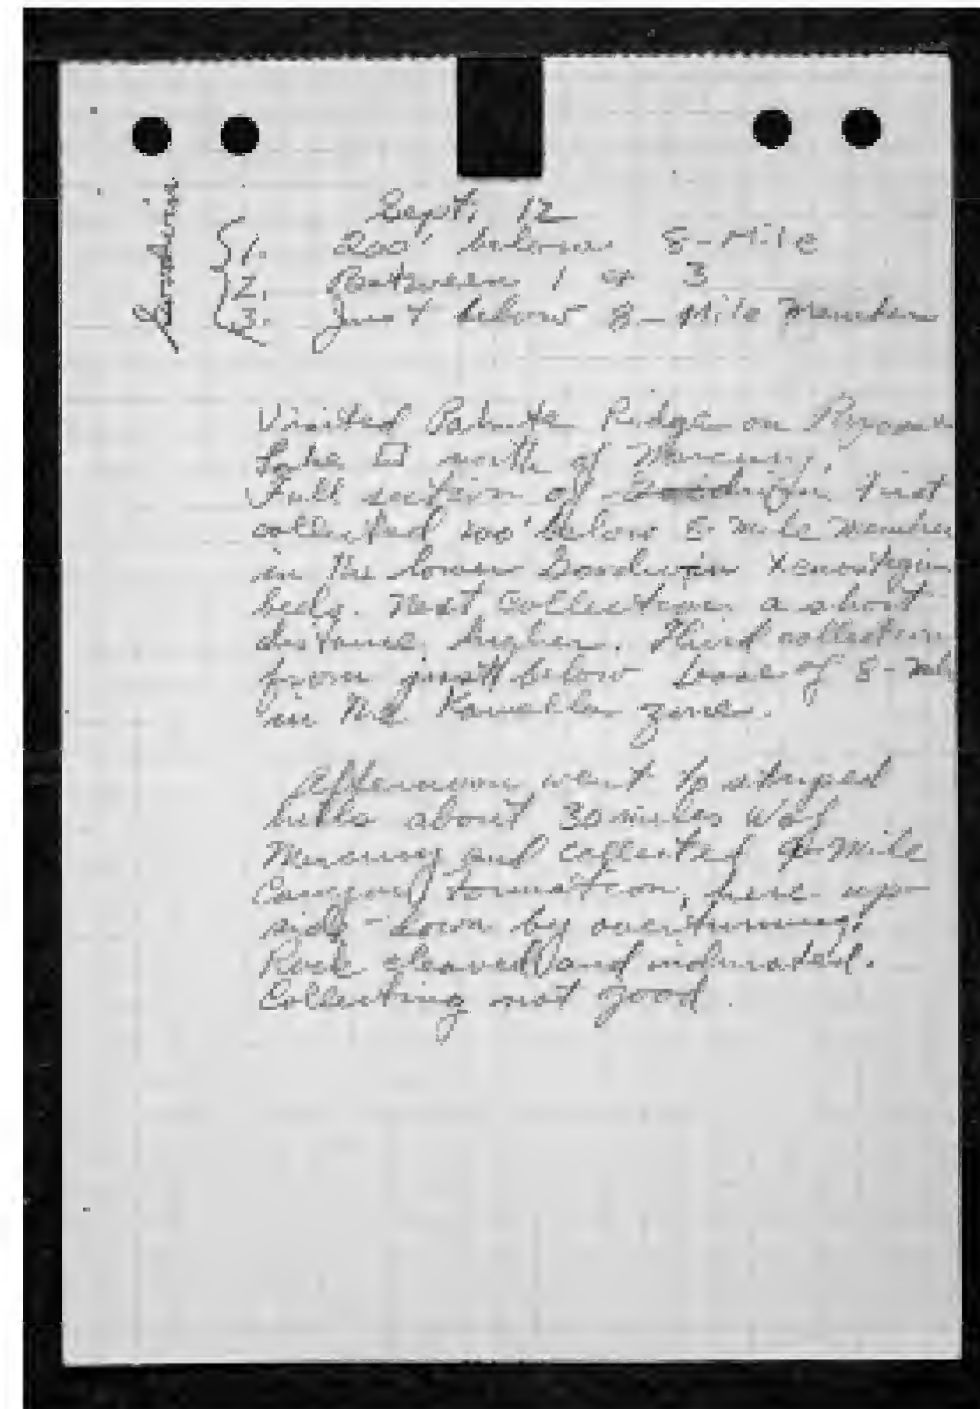 Goodwin
Sept. 12
1. 200' below 8-Mile
2. Between 1 & 3
3. Just below 8-Mile Member
Visited Paiute Ridge on
Lake north of Mercury.
Full section of Goodwin. First
collected 200' below 8 Mile Member
in the lower Goodwin
beds. Next collection a short
distance higher. Third collection
from just below base of 8-Mile
in the zone.
Afternoon went to striped
hills about 30 miles W of
Mercury and collected 9-Mile
Canyon formation, here up-
side-down by overturning.
Rock cleaved and indurated.
Collecting not good.